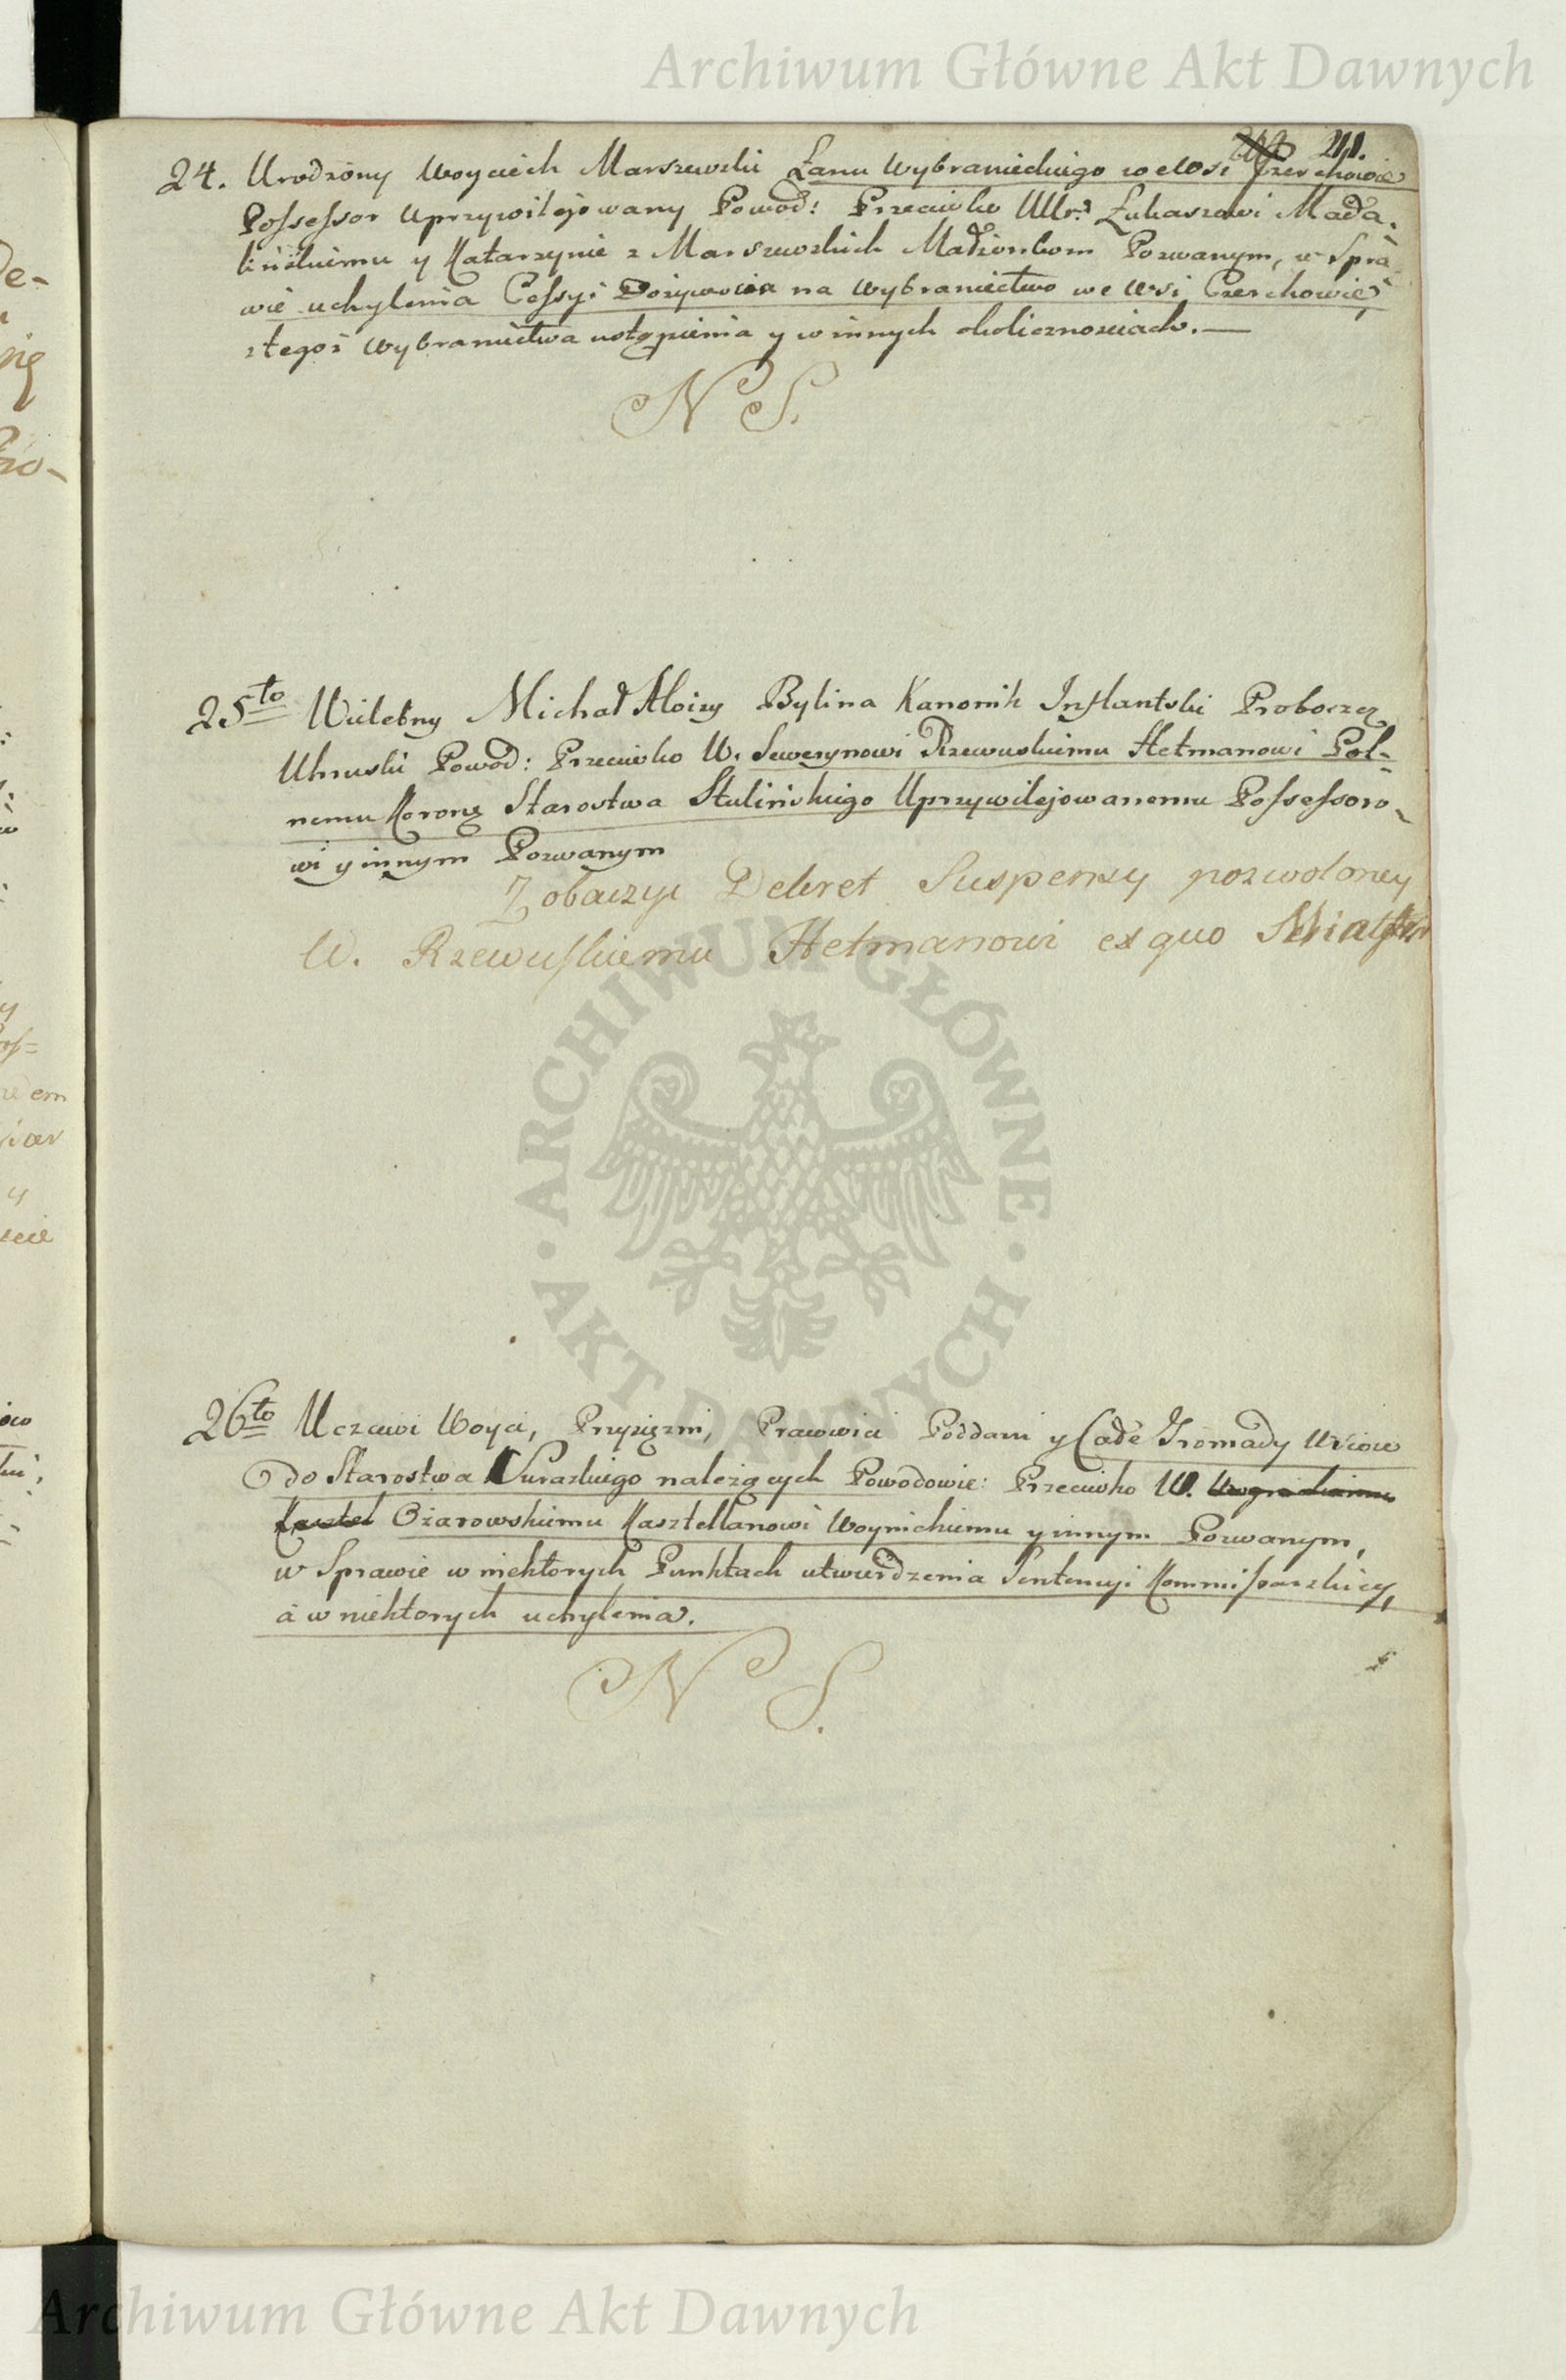 Archiwum Główne Akt Dawnych
211.
24. Urodzony Woyciech Marszewski Łanu Wybranieckiego we Wsi Czerchowie
Possessor Uprzywilejowany Powod: Przeciwko UUr: Łukaszowi Mada,
linskiemu y Katarzynie z Marszewskich Małżonkom Pozwanym, w Spra
wie uchylenia Cessyi Dożywocia na Wybraniectwo we Wsi Czerchowie,
z tegoż Wybraniectwa ustąpienia y w innych okolicznosciach. —
N S.
25to Wielebny Michał Aloizy Bylina Kanonik Inflantski Proboszcz
Uhruski Powod: Przeciwko W. Sewerynowi Rzewuskiemu Hetmanowi Pol-
nemu Koronę Starostwa Stulińskiego Uprzywilejowanemu Possessoro-
wi y innym Pozwanym
Zobaczyc Dekret Suspensy pozwoloney
W. Rzewuskiemu Hetmanowi ex quo
ARCHIWUM GŁÓWNE · AKT DAWNYCH ·
26to Uczciwi Woyci, Przysięzni, Prawowici Poddani y Całe Gromady Wsiow
do Starostwa Surazkiego należących Powodowie: Przeciwko W.
Kasztel Ożarowskiemu Kasztellanowi Woynickiemu y innym Pozwanym,
w Sprawie w niektorych Punktach utwierdzenia Sentencyi Kommissarskiey,
a w niektorych uchylenia.
N S.
Archiwum Główne Akt Dawnych